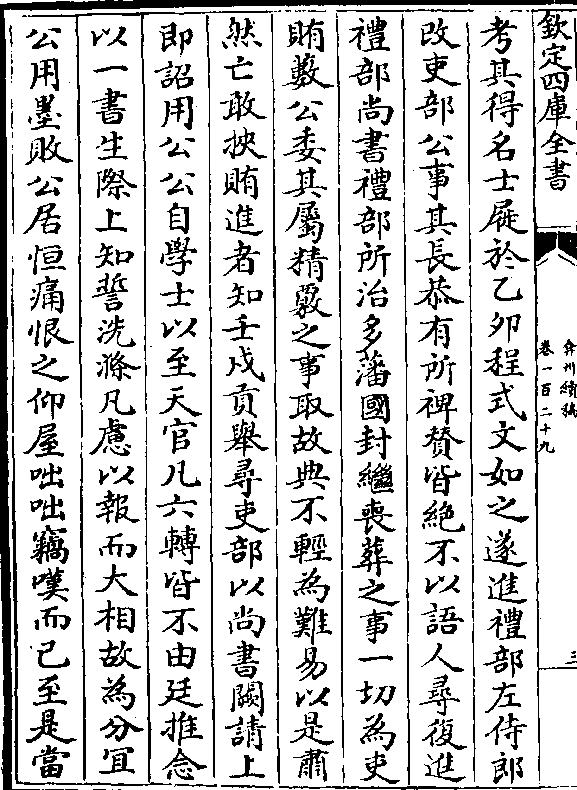 欽定四庫全書
弇州續稿
卷一百二十九
三
考其得名士屣於乙夘程式文如之遂進禮部左侍郎
改吏部公事其長恭有所禆賛皆絶不以語人尋復進
禮部尚書禮部所治多藩國封繼喪葬之事一切為吏
賄藪公委其屬精覈之事取故典不輕為難易以是肅
然亡敢挾賄進者知壬戍貢舉尋吏部以尚書闕請上
即詔用公公自學士以至天官凡六轉皆不由廷推念
以一書生際上知誓洗滌凡慮以報而大相故為分宜
公用墨敗公居恒痛恨之仰屋咄咄竊嘆而已至是當